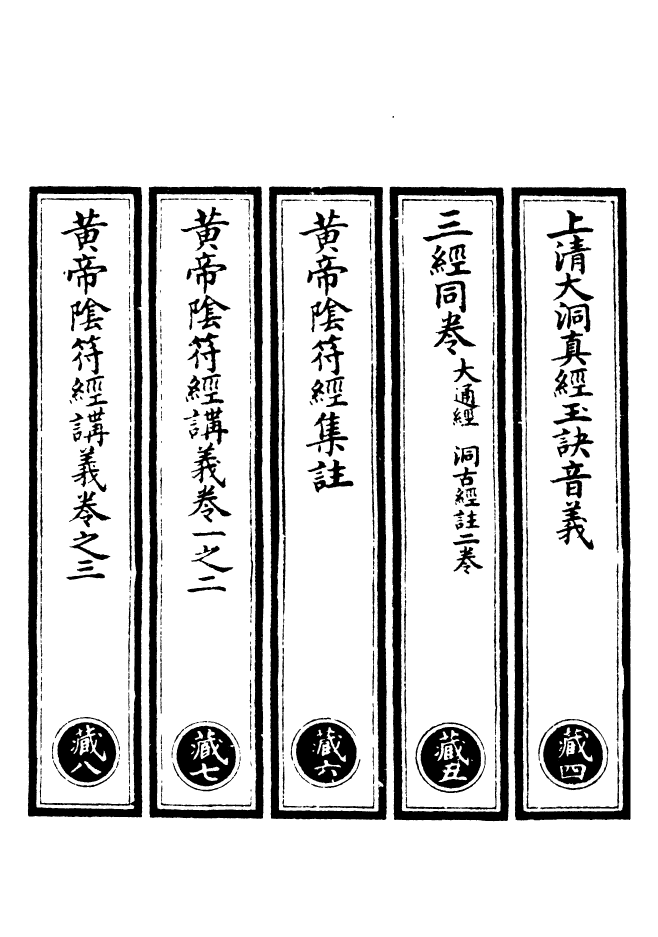 上清大洞真經玉訣音義
藏四
三經同卷 大通經 洞古經註二卷
藏五
黃帝陰符經集註
藏六
黃帝陰符經講義卷一之二
藏七
黃帝陰符經講義卷之三
藏八